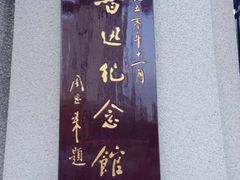 五零年十一月
魯迅紀念館
周恩来題